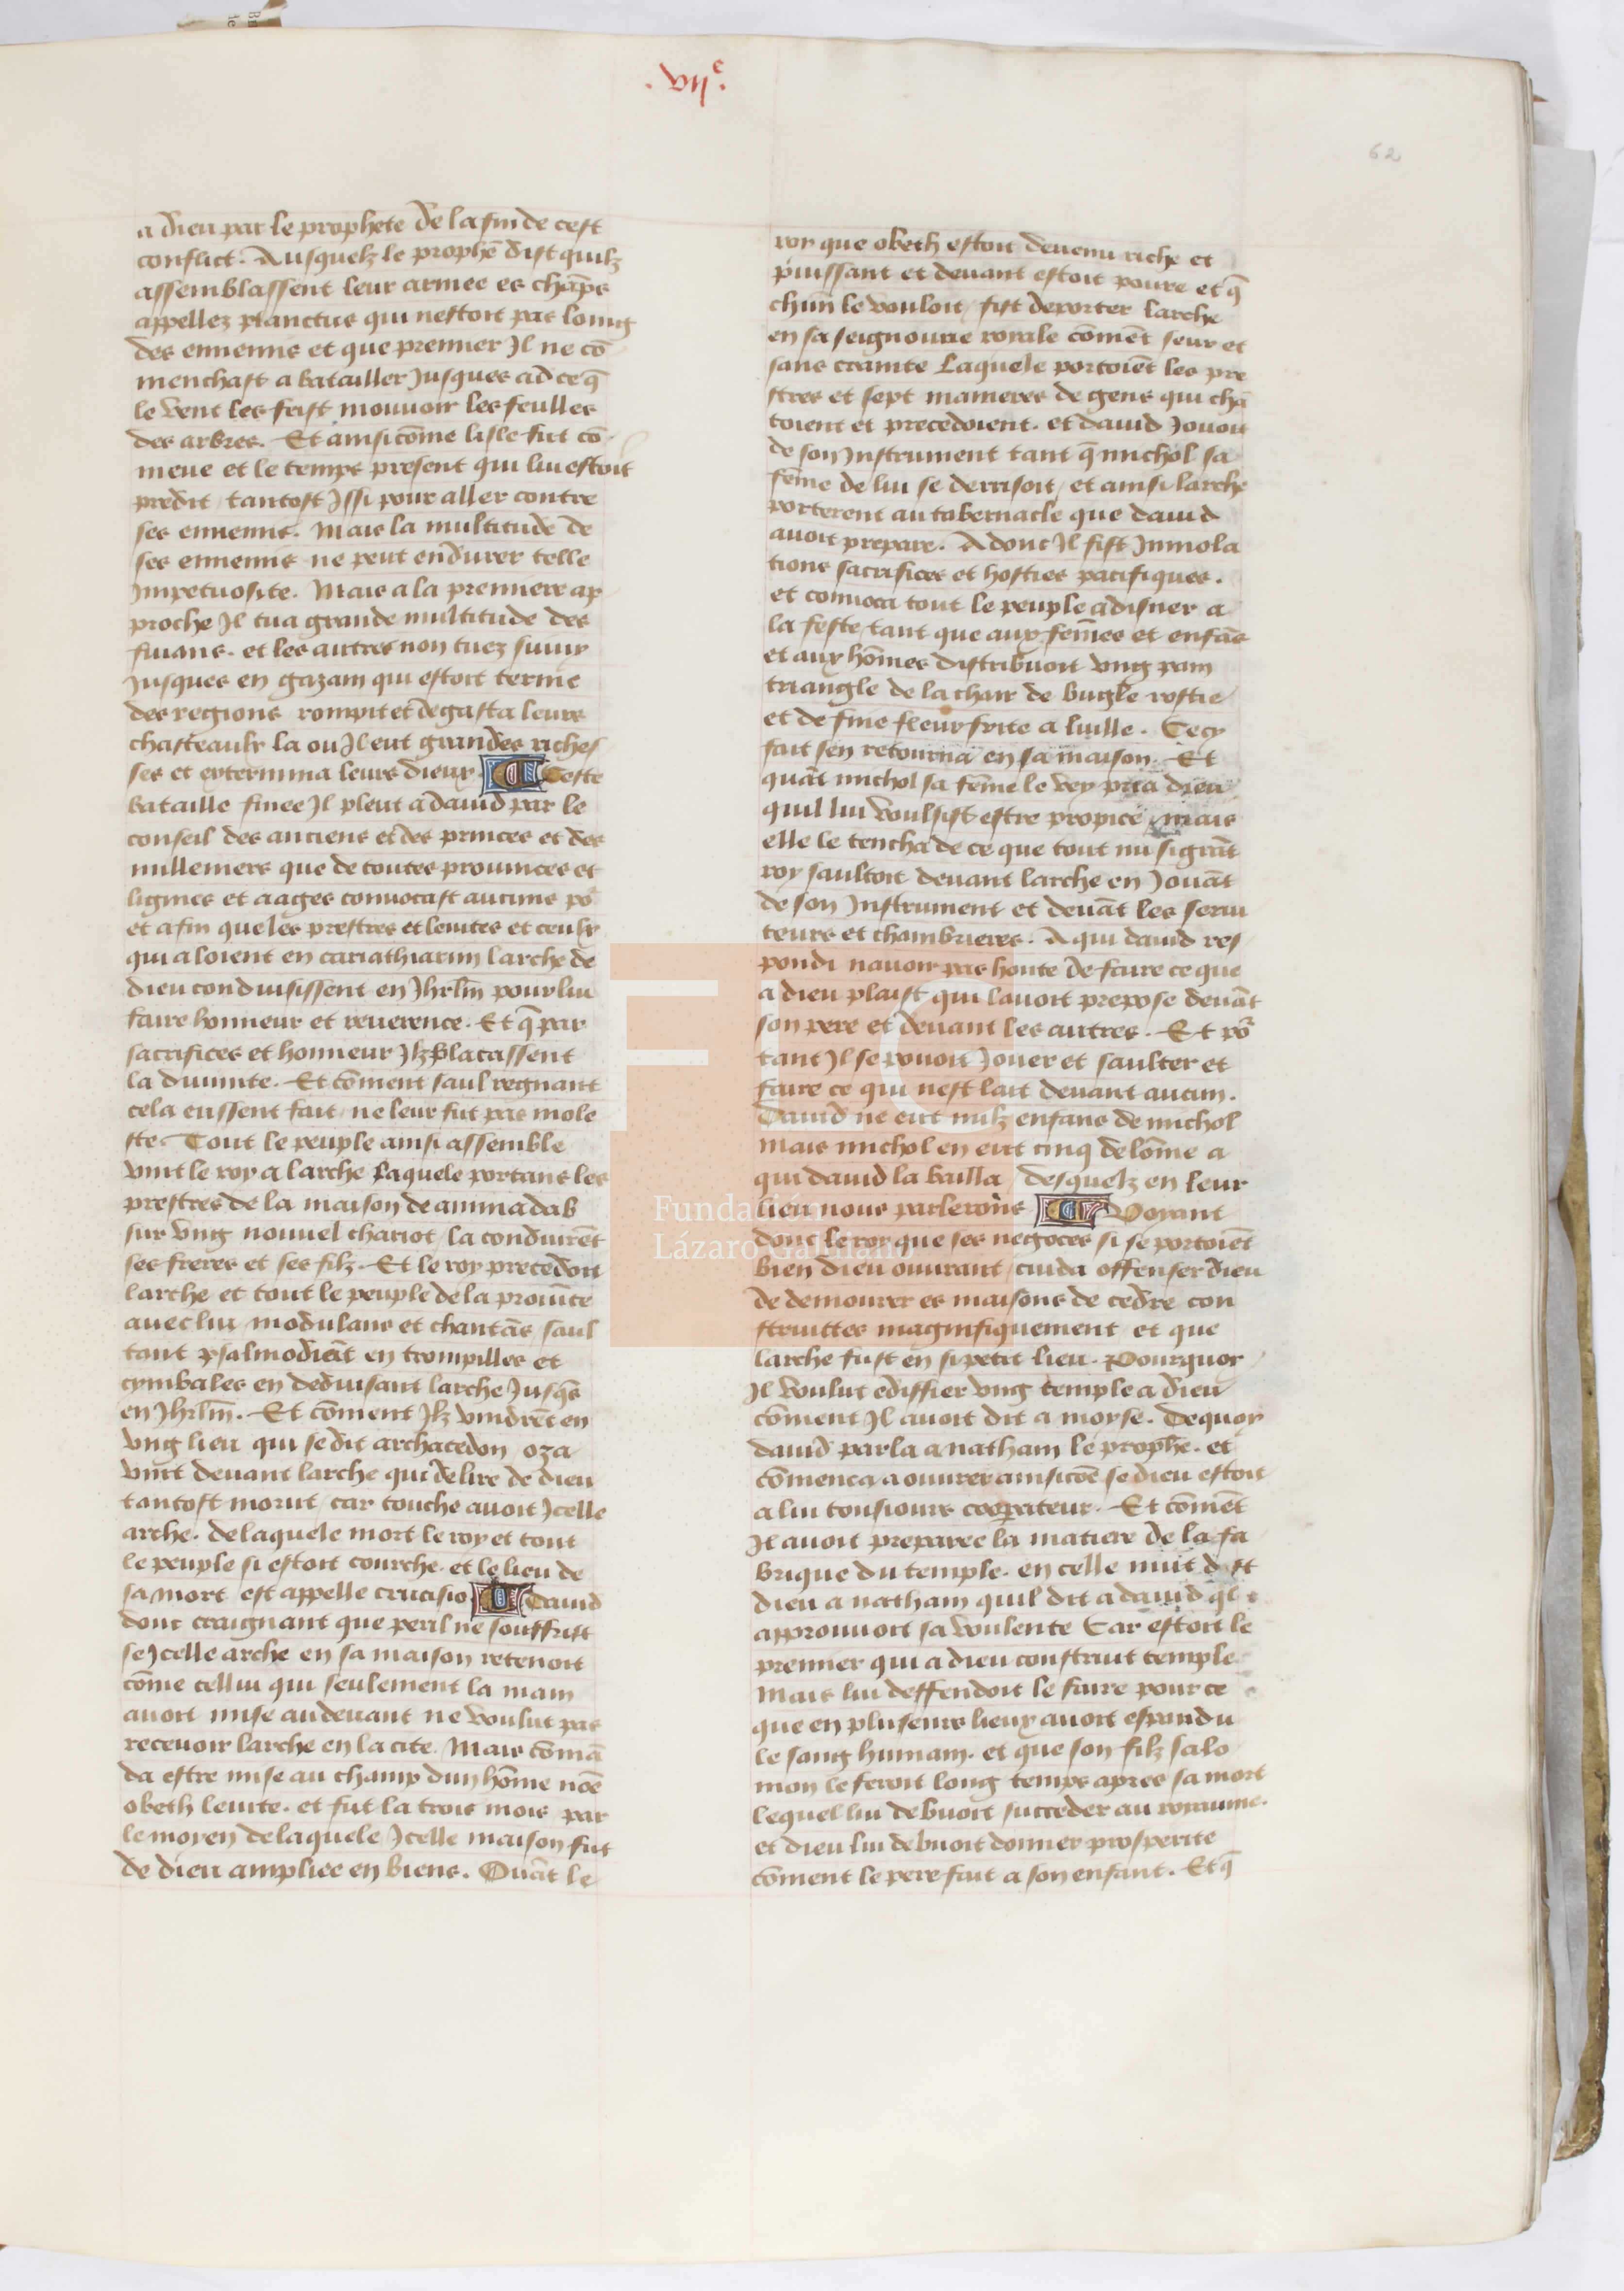 .vijᵉ.
62
a dieu par le prophete de la fin de cest
conflict. Ausquelz le prophē dist quilz
assemblassent leur armee es chāps
appellez planctus qui nestoit pas loing
des ennemis et que premier Il ne cō
menchast a batailler Jusques ad ce q̄
le vent les feist mouuoir les feulles
des arbres. Et ainsi cōme lisle fut cō
meue et le temps present qui lui estoit
predit / tantost Issi pour aller contre
ses ennemis. Mais la multitude de
ses ennemis ne peut endurer telle
Impetuosite. Mais a la premiere ap
proche Il tua grande multitude des
fuians. et les autres non tuez suiuy
Jusques en gazam qui estoit terme
des regions rompit et degasta leurs
chasteaulx la ou Il eut grandes riches
ses et extermina leurs dieux. Ceste
bataille finee Il pleut a dauid par le
conseil des anciens et des princes et des
milleniers que de toutes prouinces et
lignies et aages conuocast aucuns po
et afin que les prestres et leuites et ceulx
qui aloient en cariathiarim larche de
dieu conduisissent en Jhrlm̄ pour lui
faire honneur et reuerence. Et q̄ par
sacrifices et honneur Ilz placassent
la diuinite. Et cōment saul regnant
cela eussent fait / ne leur fut pas mole
ste. Tout le peuple ainsi assemble
vint le roy a larche Laquele portans les
prestres de la maison de aminadab
sur vng nouuel chariot / la conduirēt
ses freres et ses filz. Et le roy precedoit
larche et tout le peuple de la prouīce
auec lui modulans et chantās / saul
tant psalmodieāt en trompilles et
cymbales en deduisant larche Jusq̄s
en Jhrlm̄. Et cōment Ilz vindrēt en
vng lieu qui se dit archacedon oza
vint deuant larche qui de lire de dieu
tantost morut / car touche auoit Icelle
arche. de laquele mort le roy et tout
le peuple si estoit courche. et le lieu de
sa mort est appelle crucisio Dauid
donc craignant que peril ne souffrist
se Icelle arche en sa maison retenoit
cōme cellui qui seulement la main
auoit mise au deuant ne voulut pas
receuoir larche en la cite. Mais cōmā
da estre mise au champ dun hōme nōe
obeth leuite. et fut la trois mois par
le moyen de laquele Icelle maison fut
de dieu ampliee en biens. Quāt le
roy que obeth estoit deuenu riche et
puissant et deuant estoit poure et q̄
chūn le vouloit / fist deporter larche
en sa seignourie royale cōmēt seur et
sans crainte Laquele portoiēt les pre
stres et sept manieres de gens qui chā
toient et precedoient. et dauid Jouoit
de son Instrument tant q̄ michol sa
fēme de lui se derrisoit / et ainsi larche
porterent au tabernacle que dauid
auoit prepare. Adonc Il fist Inmola
tions sacrifices et hosties pacifiques.
et conuoca tout le peuple a disner a
la feste / tant que aux fēmes et enfās
et aux hōmes distribuoit vng pain
triangle de la chair de bugle rostie /
et de fine fleur frite a luille. Cecy
fait sen retourna en sa maison. Et
quāt michol sa fēme le vey pria dieu
quil lui voulsist estre propice mais
elle le tencha de ce que tout nu si grāt
roy saultoit deuant larche en Jouāt
de son Instrument et deuāt les serui
teurs et chambrieres. A qui dauid res
pondi nauoir pas honte de faire ce que
a dieu plaist qui lauoit prepose deuāt
son pere et deuant les autres. Et po
tant Il se pouoit Jouer et saulter et
faire ce qui nest lait deuant aucun.
Dauid ne eut nulz enfans de michol
mais michol en eut cinq de lōme a
qui dauid la bailla / desquelz en leur
lieu nous parlerons Voyant
donc le roy que ses negoces si se portoiēt
bien dieu ouurant / cuida offenser dieu
de demourer es maisons de cedre con
struittes magnifiquement et que
larche fust en si petit lieu. Pourquoy
Il voulut ediffier vng temple a dieu
cōment Il auoit dit a moyse. Dequoy
dauid parla a natham le prophē. et
cōmenca a ouurer ainsi cōe se dieu estoit
a lui tousiours cooperateur. Et cōmēt
Il auoit preparee la matiere de la fa
brique du temple. en celle nuit dist
dieu a natham quil dit a dauid ql
approuuoit sa voulente Car estoit le
premier qui a dieu construit temple
Mais lui deffendoit le faire pour ce
que en pluseurs lieux auoit espandu
le sang humain. et que son filz salo
mon le feroit long temps apres sa mort
lequel lui debuoit succeder au royaume.
et dieu lui debuoit donner prosperite
cōment le pere fait a son enfant. Et q̄
FLG
Fundación
Lázaro Galdiano